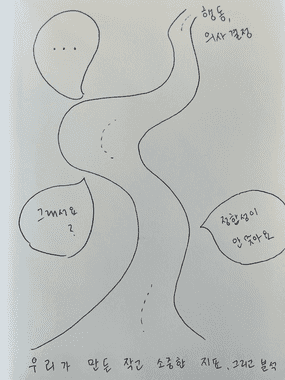 행동,
의사 결정
...
그래서요
?
정합성이
안 맞아요
우리가 만든 작고 소중한 지표, 그리고 분석